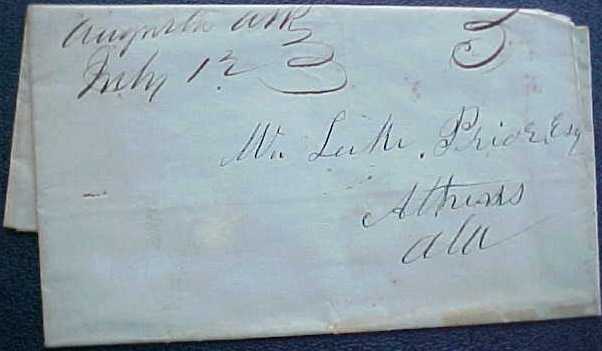 Augusta Ark 5
July 12
Mr Luke Prior, Esq
Athens
Ala